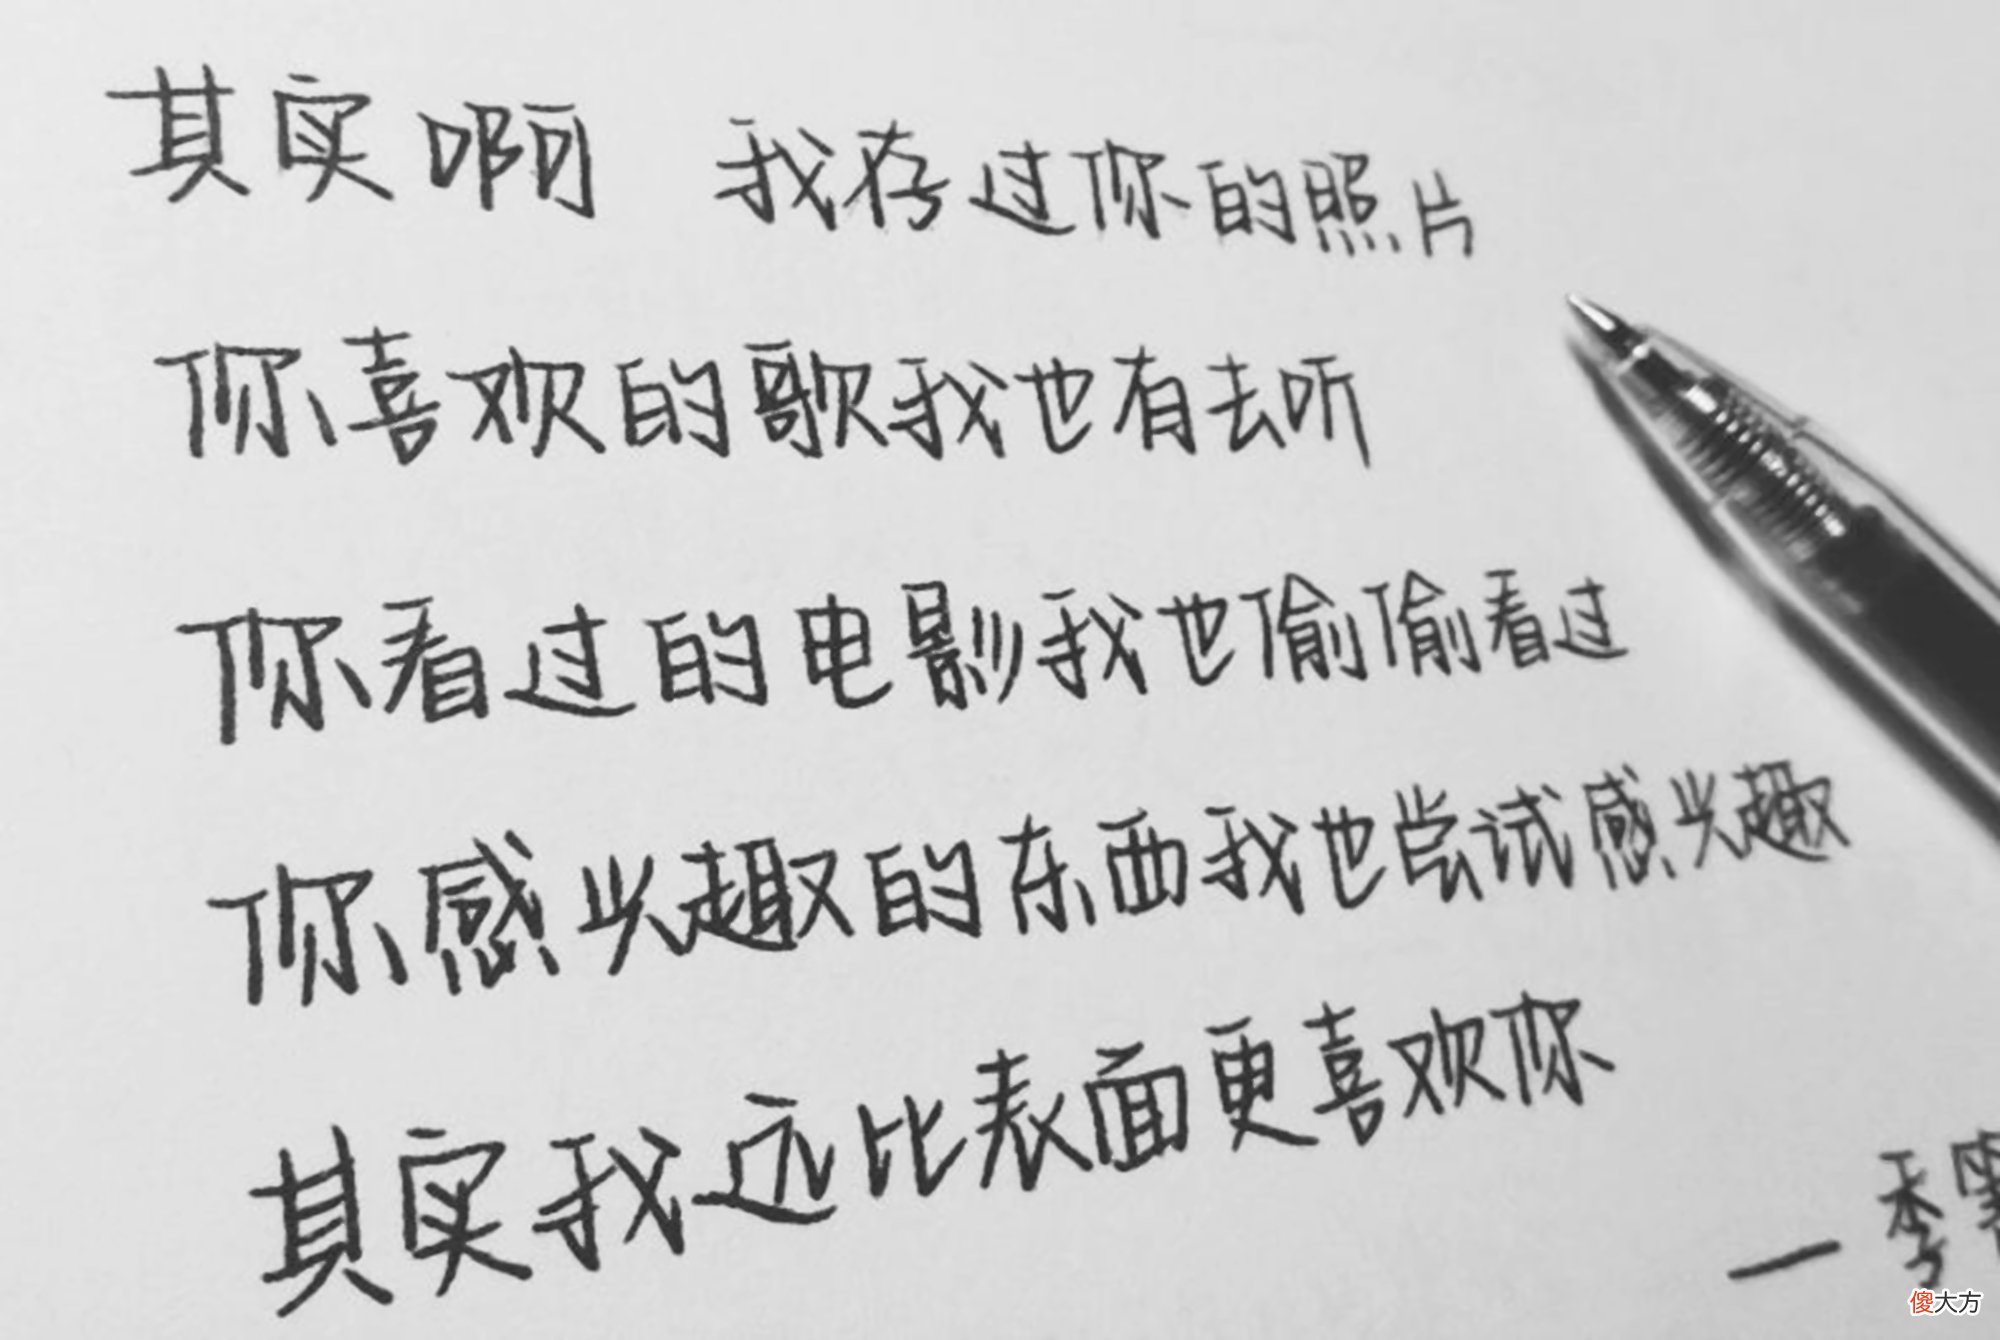 其实啊 我存过你的照片
你喜欢的歌我也有去听
你看过的电影我也偷偷看过
你感兴趣的东西我也尝试感兴趣
其实我远比表面更喜欢你
—季
傻大方